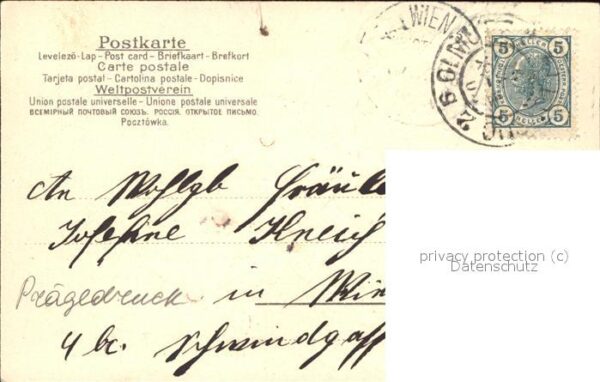 Postkarte
Levelező-Lap - Post card - Briefkaart - Brefkort
Carte postale
Tarjeta postal - Cartolina postale - Dopisnice
Weltpostverein
Union postale universelle - Unione postale universale
ВСЕМІРНЫЙ ПОЧТОВЫЙ СОЮЗЪ. РОССІЯ. ОТКРЫТОЕ ПИСЬМО.
Pocztówka.
WIEN
5 HELLER 5
5 HELLER 5
An Wohlgb Fräule
Josefine
privacy protection (c)
Datenschutz
Prägedruck in Wie
4 bz. Schwindgaff